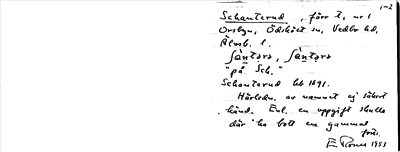 1-2
Schanterud, förr t. nr 1
Orsbyn, Ödskölt sn, Vedbo hd,
Älvsb. l.
"på Sch."
Schanterud hb 1691.
Härledn. av namnet ej säkert
känd. Enl. en uppgift skulle
där ha bott en gammal
E 1953